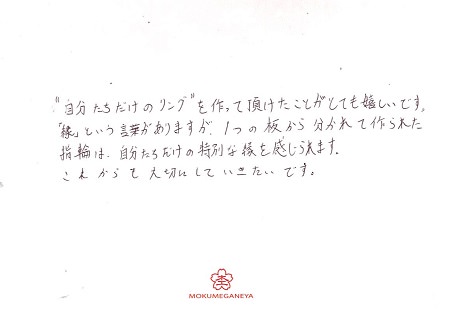 "自分たちだけのリング"を作って頂けたことがとても嬉しいです。
「縁」という言葉がありますが、1つの板から分かれて作られた
指輪は、自分たちだけの特別な縁を感じられます.
これからも大切にしていきたいです。
MOKUMEGANEYA